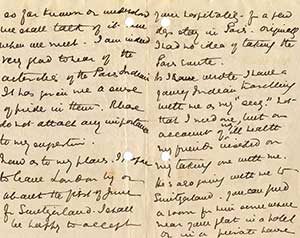 as far known or
we shall talk of it
when we meet. I am indeed
very glad to hear of the
activities of the Paris Indians
It has given me a sense
of pride in them. Please
do not attach any importance
to my
Now as to my plans. I hope
to leave London by or
about the first of June
for Switzerland. I shall
be happy to accept
your hospitality for a few
days stay in Paris. Originally
I had no idea of taking the
Paris route.
As I have wrote I have a
young Indian travelling
with me as my "secy." Not
that I need one, but on
account of ill health
my friends insisted on
my taking one with me.
He is also going with me to
Switzerland. If you can find
a room for him somewhere
near your flat in a hotel
or in a private house